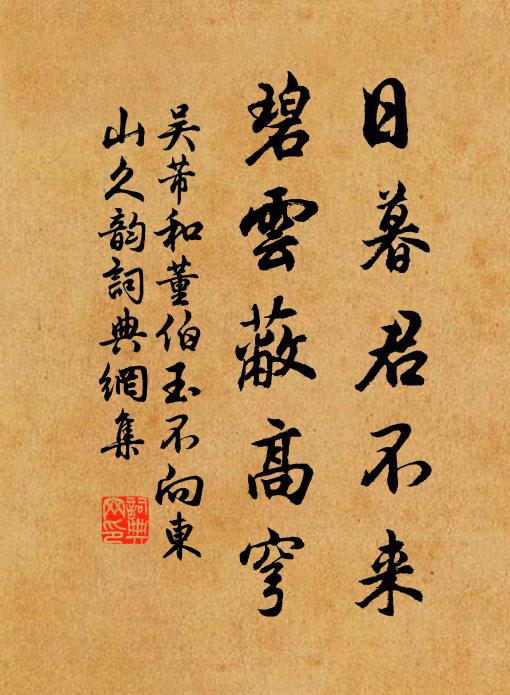 日暮君不来
碧雲蔽高穹
吴芾和董伯玉不向東
山久韵詞典網集
詞典
网印